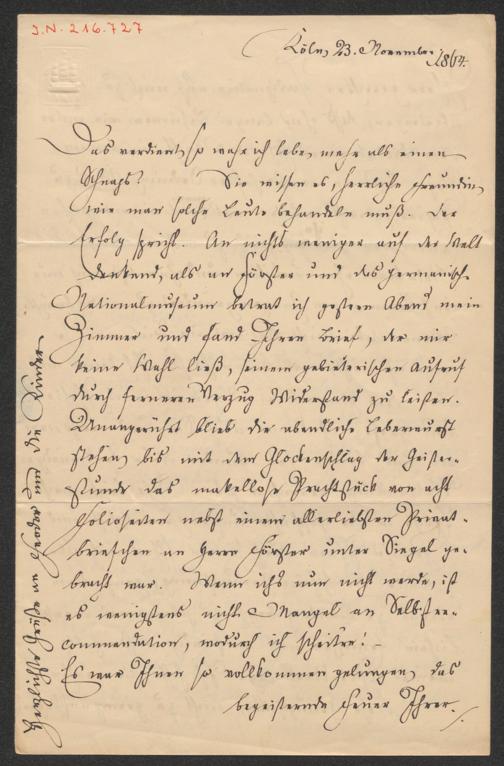 J.N. 216.727
Köln, 23. November 1864.
Das verdient, so wahr ich lebe, mehr als einen
Schnaps! Sie wissen es, herrliche Freundin,
wie man solche Leute behandeln muß. Der
Erfolg spricht. An nichts weniger auf der Welt
denkend, als an Förster und das germanische
Nationalmuseum betrat ich gestern Abend mein
Zimmer und fand Ihren Brief, der mir
keine Wahl ließ, seinem gebieterischen Aufruf
durch ferneren Verzug Widerstand zu leisten.
Unangerührt blieb die abendliche Leberwurst
stehen, bis mit dem Glockenschlag der Geister-
stunde das makellose Prachtstück von acht
Folioseiten nebst einem allerliebsten Privat-
briefchen an Herrn Förster unter Siegel ge-
bracht war. Wenn ich's nun nicht werde, ist
es wenigstens nicht Mangel an Selbstre-
commendation, wodurch ich scheitre! –
Es war Ihnen so vollkommen gelungen, das
begeisternde Feuer Ihrer
Herzlichste Grüße an Theodor und die Kinder.